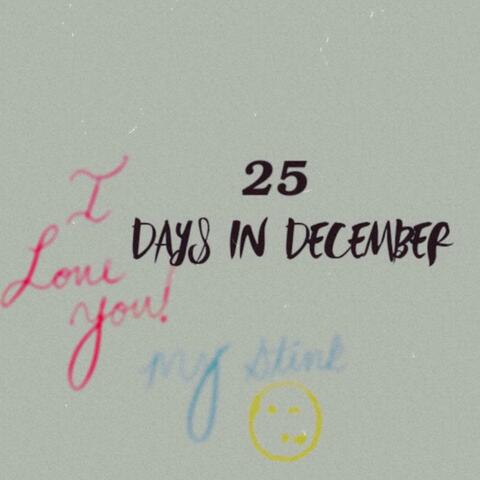 25
DAYS IN DECEMBER
I
Love
you!
my Stink